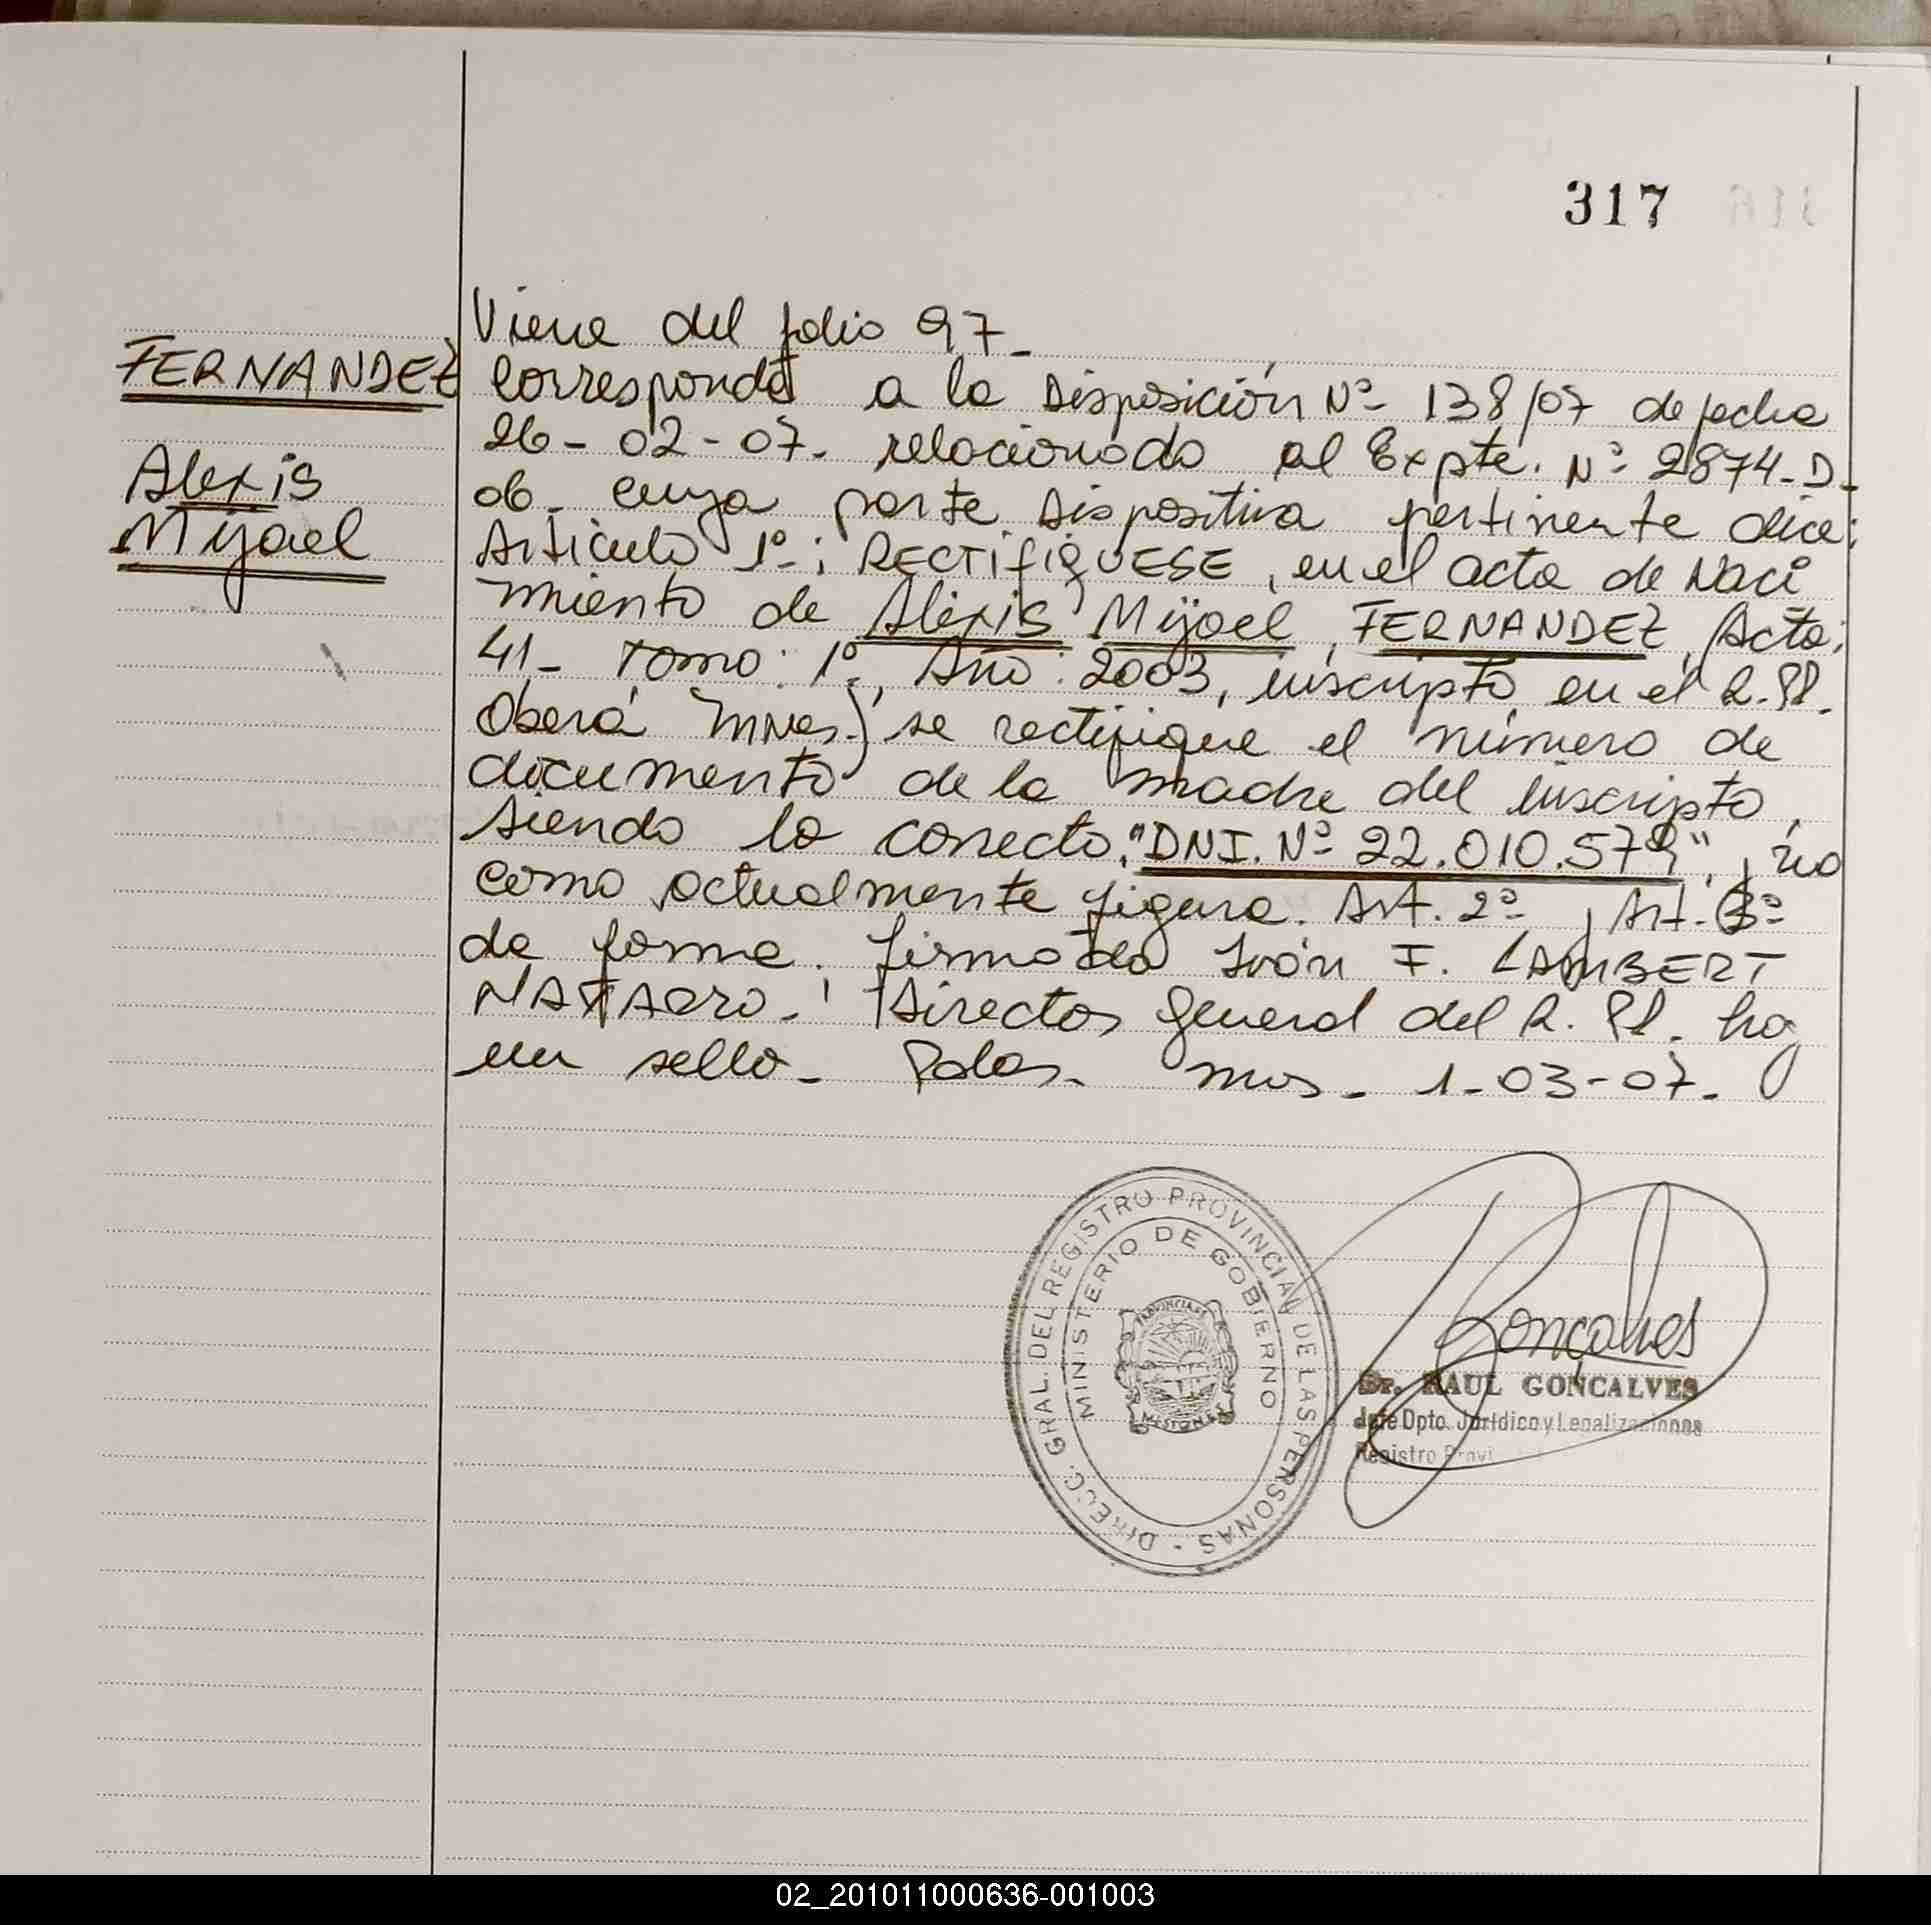 317
Viene del folio 97_
FERNANDEZ
Corresponde a la Disposición Nº 138/07 de fecha
26-02-07. relacionado al Expte. Nº 2874-D_
Alexis
06_ cuya parte Dispositiva pertinente dice:
Mijael
Artículo 1º: RECTIFIQUESE, en el acta de Naci
miento de Alexis Mijael, FERNANDEZ, Acta:
41_ Tomo: 1º, Año: 2003, inscripto en el R.PP.
Oberá Mnes.) se rectifique el número de
documento de la madre del inscripto,
siendo lo correcto: "DNI. Nº 22.010.579", no
como actualmente figura. Art. 2º, Art. 3º
de forma. firmado Iván F. LAMBERT
Director General del R. PP. hay
un sello_ Pdas. Mnes_ 1-03-07.
DIRECC. GRAL. DEL REGISTRO PROVINCIAL DE LAS PERSONAS
MINISTERIO DE GOBIERNO
PROVINCIA DE
MISIONES
Gonçalves
Dr. RAUL GONÇALVES
Jefe Dpto. Jurídico y Legalizaciones
Registro
02_201011000636-001003